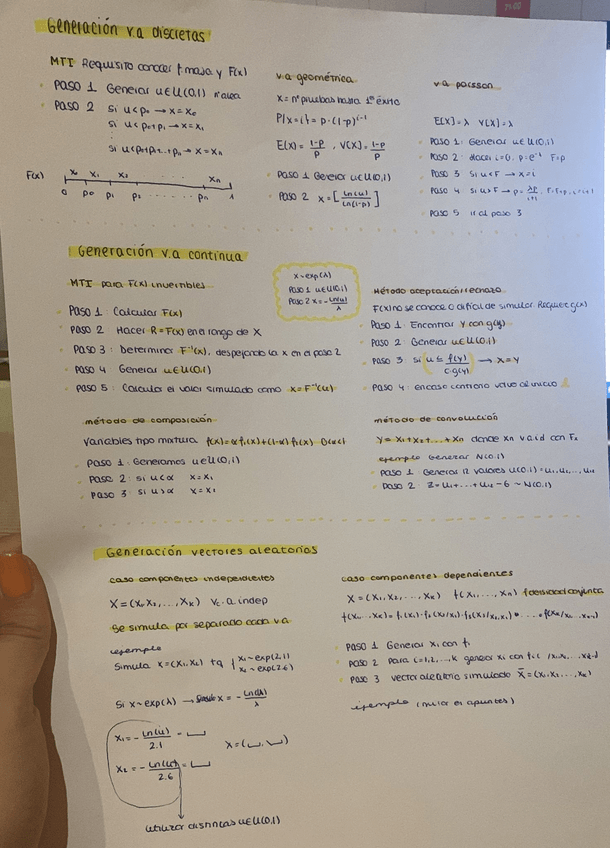 Generación v.a discretas
MTI Requisito conocer f.masa y F(x)
Paso 1 Generar u∈U(0,1)
Paso 2 Si u<p₀ → x=x₀
Si u<p₀+p₁ → x=x₁
Si u<p₀+p₁+...+pₙ → x=xₙ
F(x)
x₀ x₁ x₂ xₙ
0 p₀ p₁ p₂ ..... pₙ 1
v.a geométrica
X = nº pruebas hasta 1er éxito
P{x=i} = p·(1-p)^(i-1)
E(x) = (1-p)/p , V(x) = (1-p)/p
Paso 1 Generar u∈U(0,1)
Paso 2 x = [ln(u)/ln(1-p)]
v.a poisson
E[X]=λ V[X]=λ
Paso 1: Generar u∈U(0,1)
Paso 2: Hacer i=0, p=e^-λ F=p
Paso 3 Si u<F → x=i
Paso 4: Si u>F → p=λp/(i+1), F=F+p, i=i+1
Paso 5 ir al paso 3
Generación v.a continua
MTI para F(x) invertibles
Paso 1: Calcular F(x)
Paso 2 Hacer R=F(x) en el rango de X
Paso 3: Determinar F⁻¹(x), despejando la x en el paso 2
Paso 4 Generar u∈U(0,1)
Paso 5: Calcular el valor simulado como x=F⁻¹(u)
x~exp(λ)
Paso 1 u∈U(0,1)
Paso 2 x=-ln(u)/λ
Método aceptación/rechazo
F(x) no se conoce o difícil de simular. Requiere g(x)
Paso 1: Encontrar Y con g(y)
Paso 2 Generar u∈U(0,1)
Paso 3 Si (u ≤ f(y)/c·g(y)) → x=Y
Paso 4: en caso contrario volver al inicio
método de composición
Variables tipo mixtura f(x)=αf₁(x)+(1-α)f₂(x) 0<α<1
Paso 1: Generamos u∈U(0,1)
Paso 2: Si u<α x=x₁
Paso 3: Si u>α
método de convolución
Y=X₁+X₂+...+Xₙ donde xₙ va id con Fₓ
ejemplo Generar N(0,1)
Paso 1: Generar 12 valores U(0,1)=u₁,u₂,...,u₁₂
Paso 2: Z=u₁+...+u₁₂-6 ~ N(0,1)
Generación vectores aleatorios
caso componentes independientes
X=(x₁,x₂,...,xₖ) v.a indep
Se simula por separado cada v.a
ejemplo
Simula x=(x₁,x₂) tq { x₁~exp(2,1)
x₂~exp(2,6)
Si x~exp(λ) → x=-ln(u)/λ
x₁=-ln(u)/2.1 = ⎵
x=(⎵,⎵)
x₂=-ln(u)/2.6 = ⎵
utilizar distintas u∈U(0,1)
caso componentes dependientes
X=(x₁,x₂,...,xₖ) f(x₁,...,xₙ) f densidad conjunta
Paso 1 Generar x₁ con f₁
Paso 2 Para i=1,2,...,k generar xᵢ con
Paso 3 vector aleatorio simulado X̄=(x₁,x₂,...,xₖ)
ejemplo (mirar en apuntes)